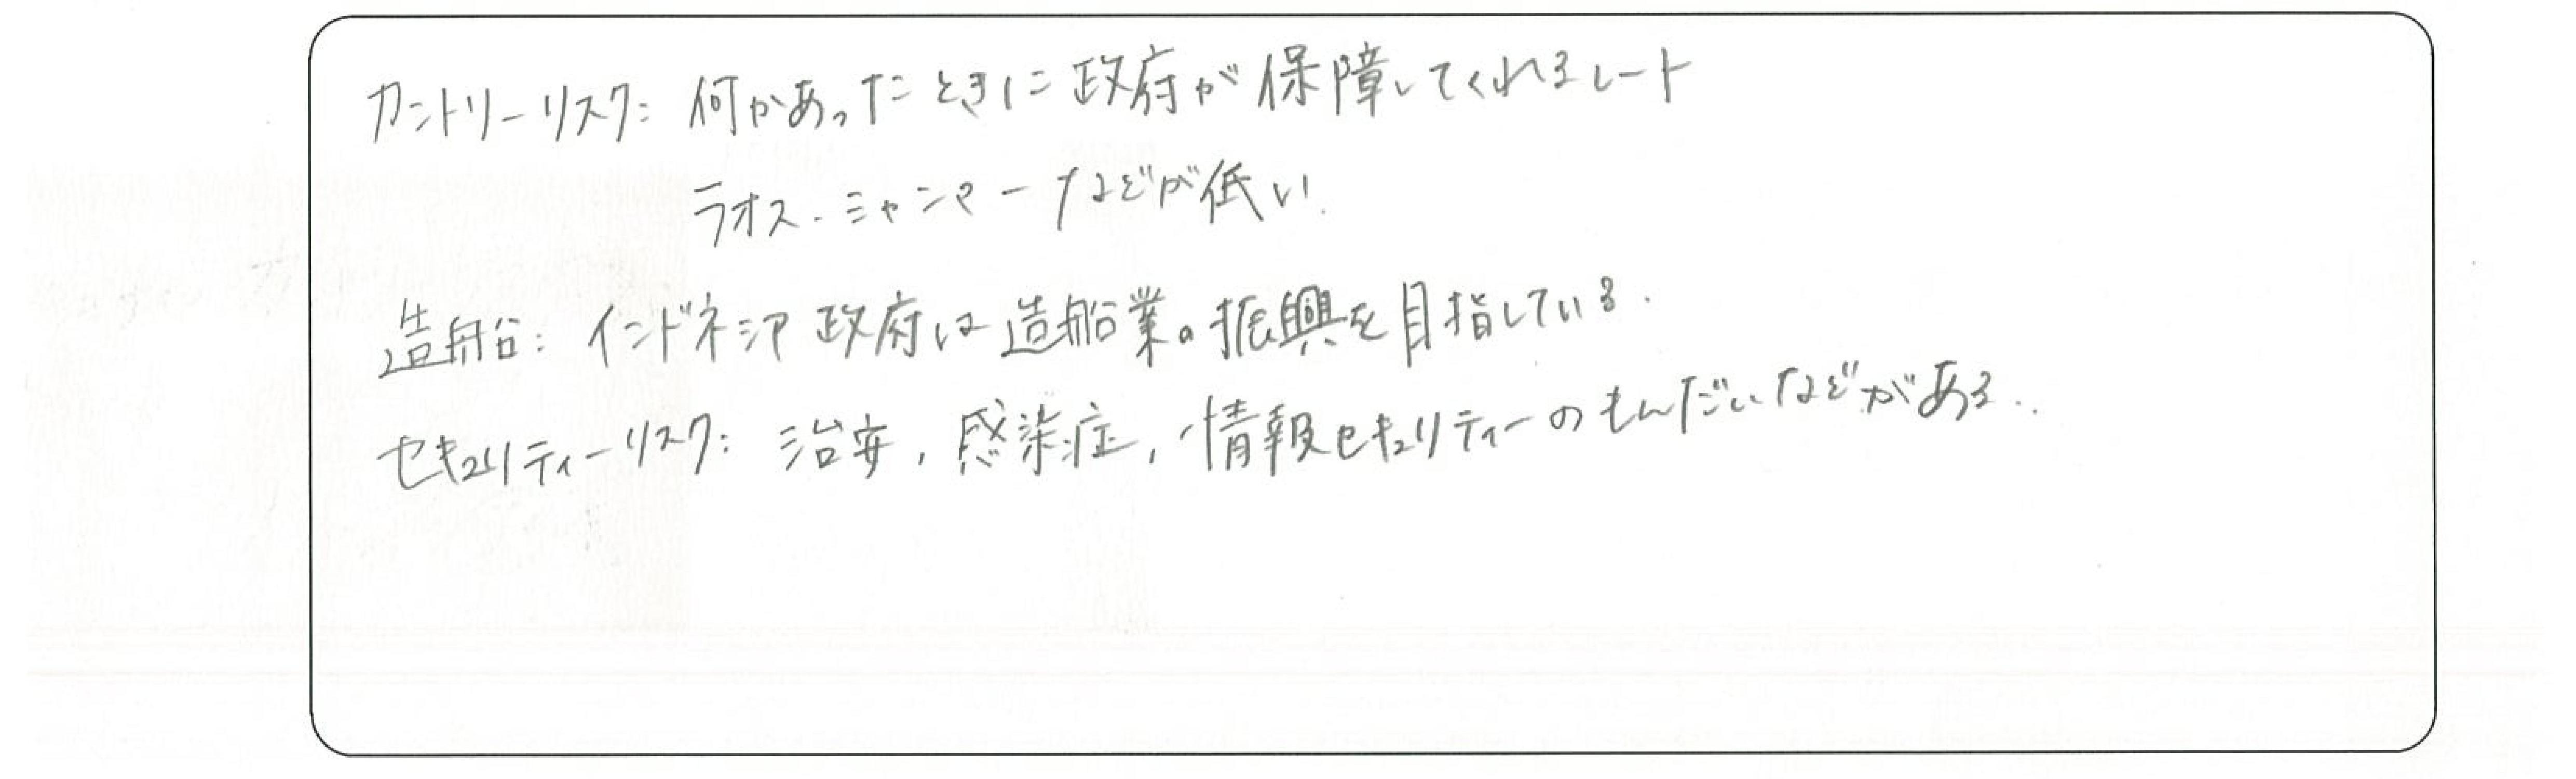 カントリーリスク: 何かあったときに政府が保障してくれるレート
ラオス・ミャンマーなどが低い.
造船: インドネシア政府は造船業の振興を目指している.
セキュリティーリスク: 治安, 感染症, 情報セキュリティーのもんだいなどがある.